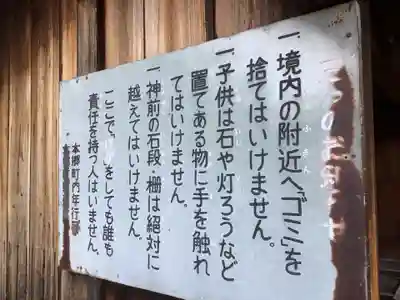 一、境内の附近へ『ゴミ』を
捨てはいけません。
一、子供は石や灯ろうなど
置てある物に手を触れ
てはいけません。
一、神前の石段・柵は絶対に
越えてはいけません。
一、ここで をしても誰も
責任を持つ人はいません。
本郷町内年行